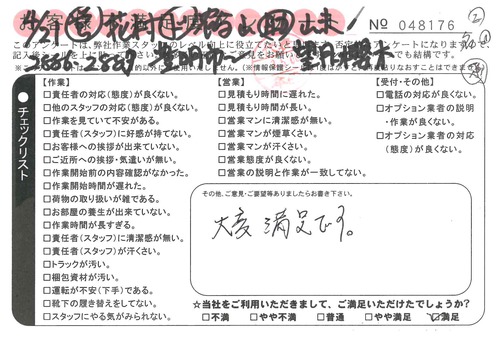 No 048176
チェックリスト
【作業】
□責任者の対応(態度)が良くない。
□他のスタッフの対応(態度)が良くない。
□作業を見ていて不安がある。
□責任者(スタッフ)に好感が持てない。
□お客様への挨拶が出来ていない。
□ご近所への挨拶・気遣いが無い。
□作業開始前の内容確認がなかった。
□作業開始時間が遅れた。
□荷物の取り扱いが雑である。
□お部屋の養生が出来ていない。
□作業時間が長すぎる。
□責任者(スタッフ)に清潔感が無い。
□責任者(スタッフ)が汗くさい。
□トラックが汚い。
□梱包資材が汚い。
□運転が不安(下手)である。
□靴下の履き替えをしてない。
□スタッフにやる気がみられない。
【営業】
□見積もり時間に遅れた。
□見積もり時間が長い。
□営業マンに清潔感が無い。
□営業マンが煙草くさい。
□営業マンが汗くさい。
□営業態度が良くない。
□営業の説明と作業が一致してない。
【受付・その他】
□電話の対応が良くない。
□オプション業者の説明
・作業が良くない。
□オプション業者の対応
(態度)が良くない。
その他、ご意見・ご要望等ありましたらお書き下さい。
大変満足です。
☆当社をご利用いただきまして、ご満足いただけたでしょうか?
□不満 □やや不満 □普通 □やや満足 ☑満足